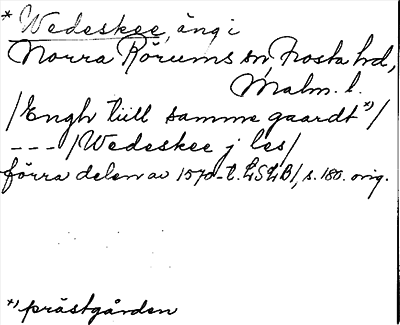 * Wedeskee, äng i
Norra Rörums sn, Frosta hd,
Malm. l.
/Engh tiill samme gaardt *)/
--- /Wedeskee j les/
förra delen av 1570-t. LSLB/, s. 180. orig.
*) prästgården